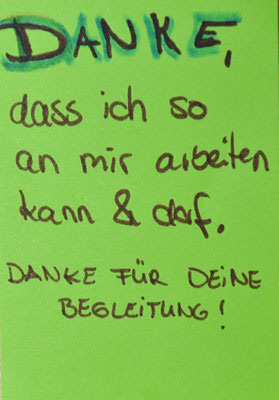 DANKE,
dass ich so
an mir arbeiten
kann & darf.
DANKE FÜR DEINE
BEGLEITUNG!